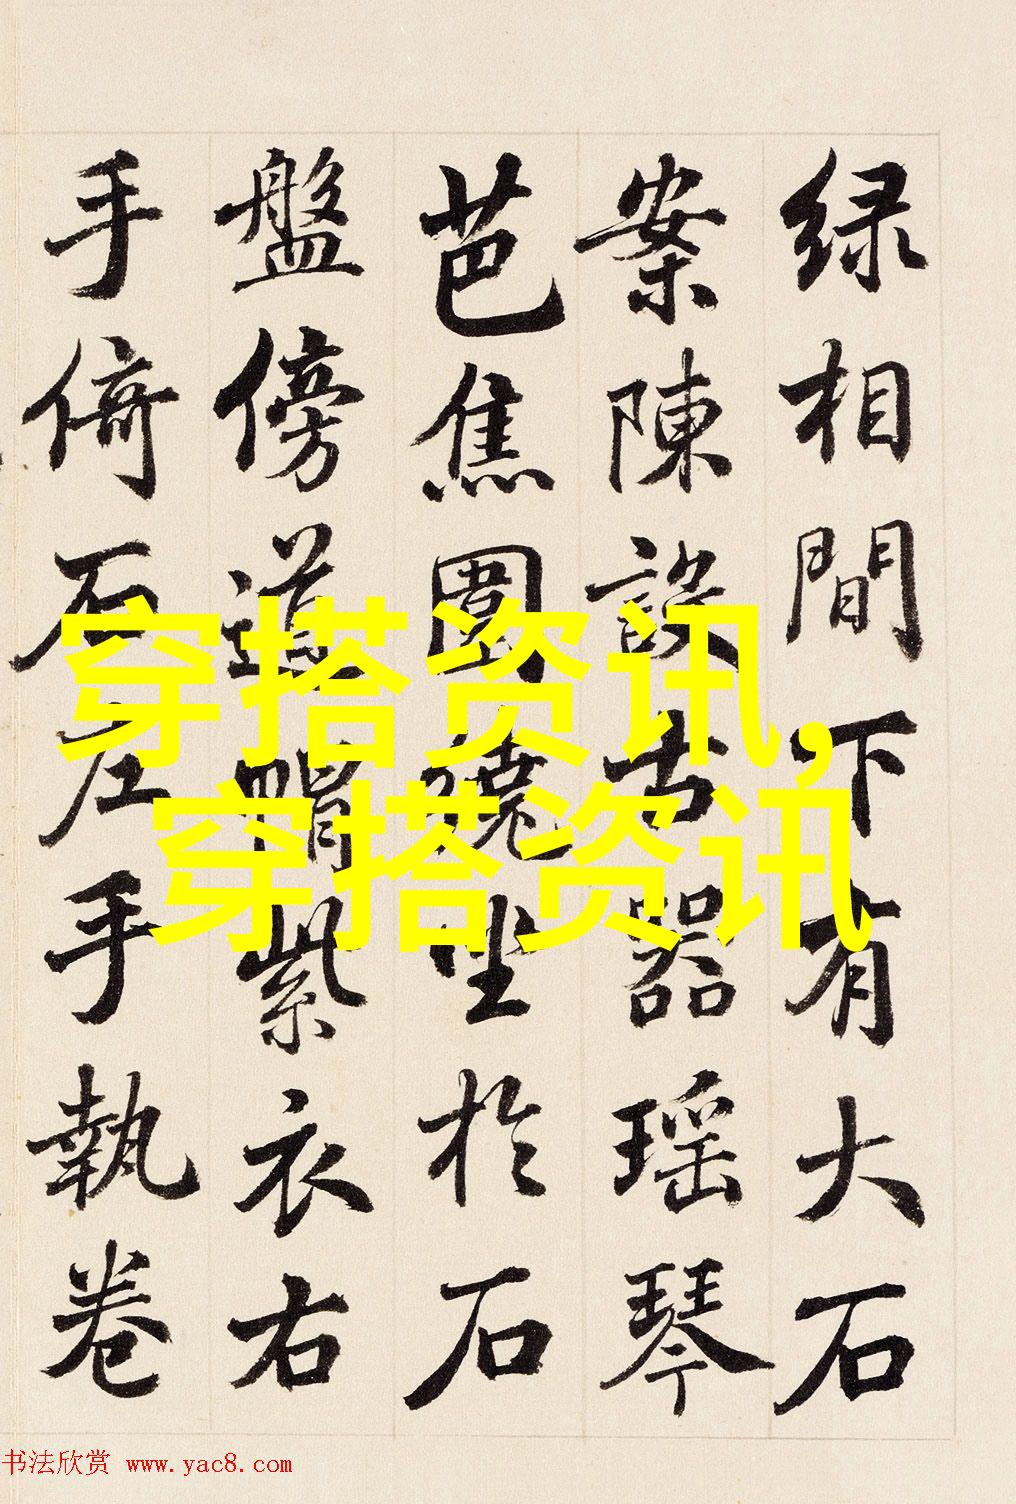 绿相間下有大石
案陳設古器瑶琴
芭焦圍繞坐於石
盤傍道帽紫衣右
手倚石左手執卷
穿搭资讯,
穿搭资讯
书法欣赏 www.yac8.com